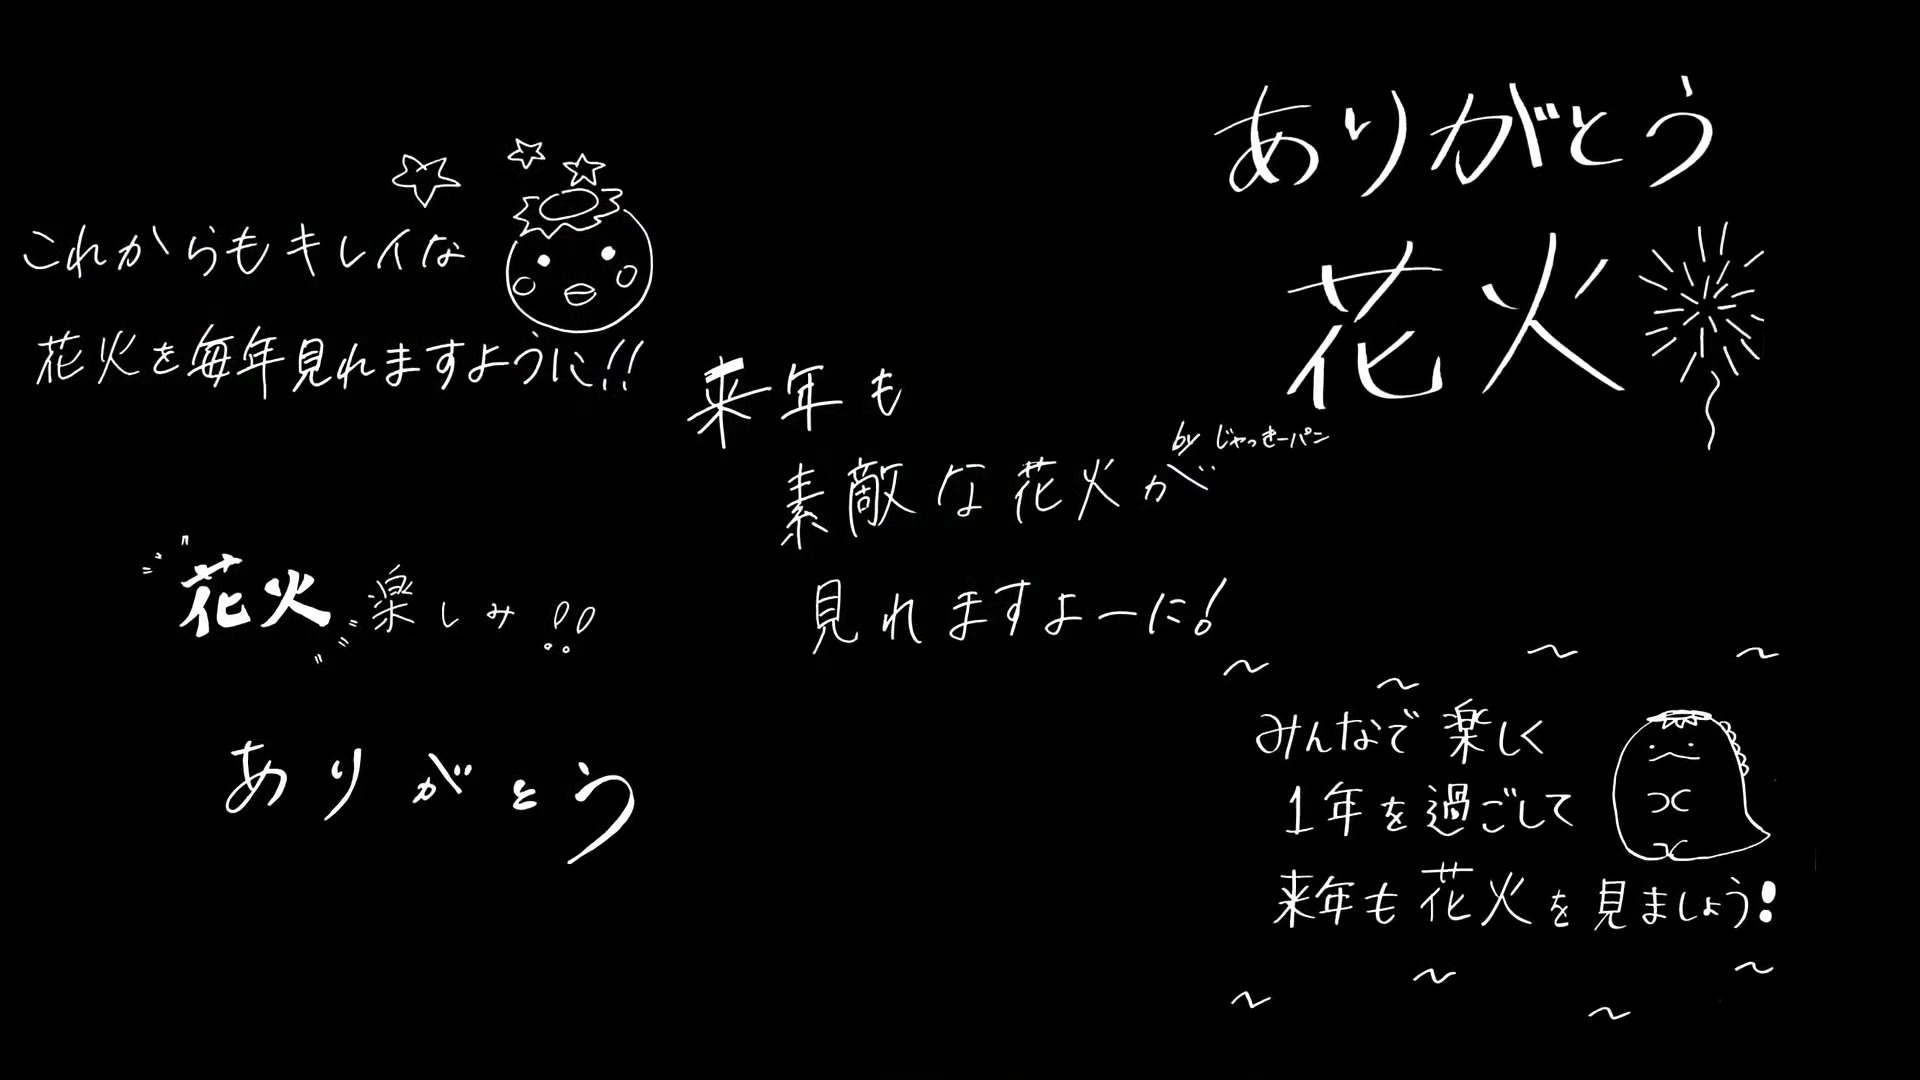 これからもキレイな
花火を毎年見れますように!!
花火楽しみ!!
ありがとう
来年も
素敵な花火が
見れますよーに!
ありがとう
花火
by じゃっきーパン
みんなで楽しく
1年を過ごして
来年も花火を見ましょう!